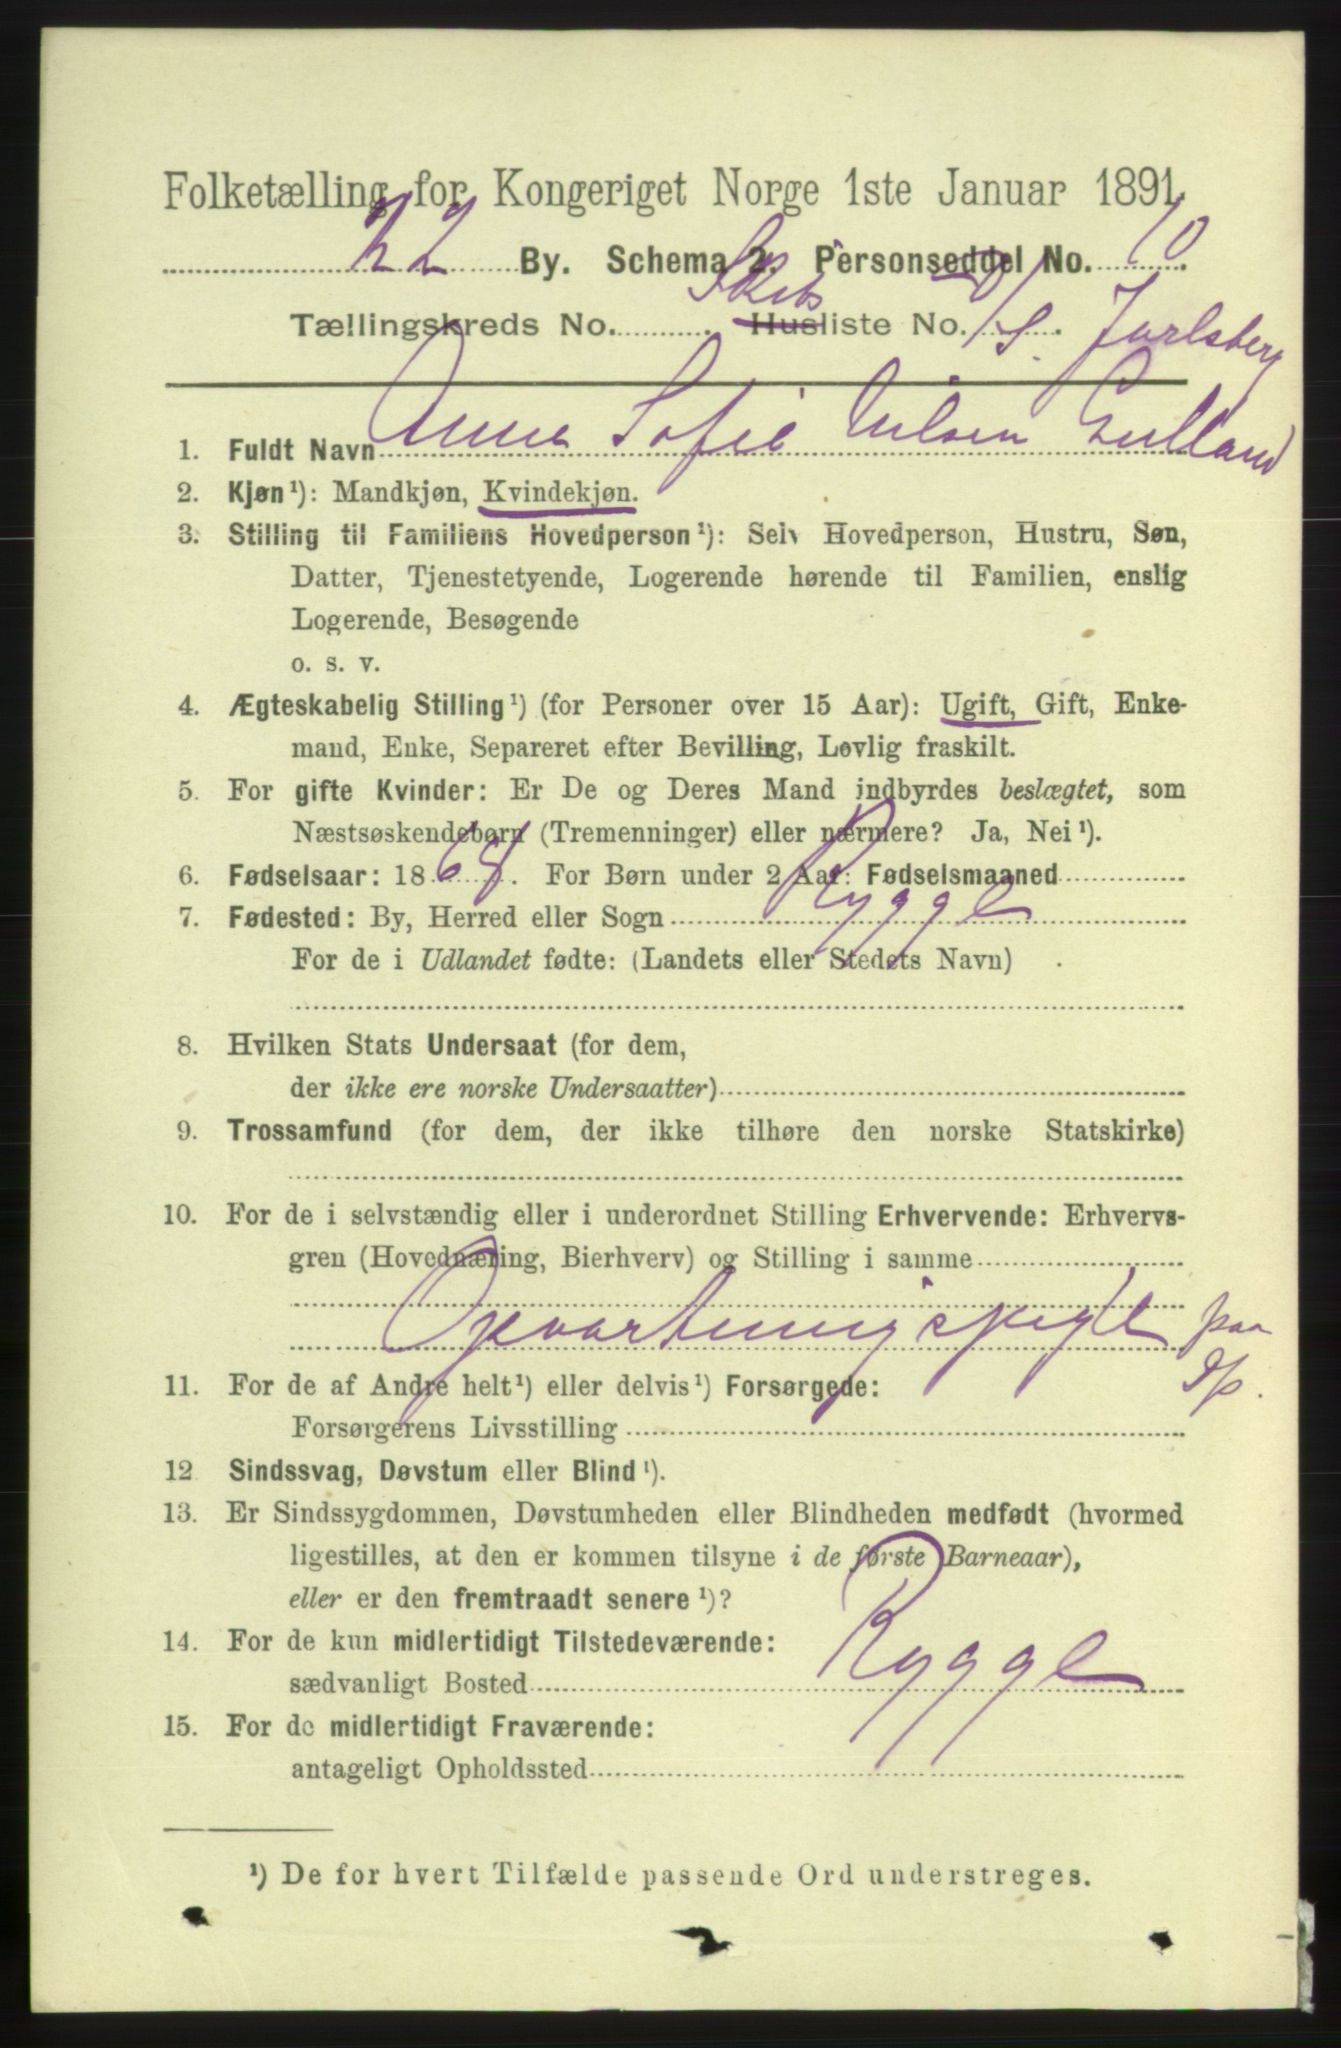 Folketælling for Kongeriget Norge 1ste Januar 1891.
22 By. Schema 2. Personseddel No. 10
Skibs
Tællingskreds No. Husliste No. D/S. Jarlsberg
1. Fuldt Navn Anna Sofie Nilsen Gulland
2. Kjøn¹): Mandkjøn, Kvindekjøn.
3. Stilling til Familiens Hovedperson¹): Selv Hovedperson, Hustru, Søn,
Datter, Tjenestetyende, Logerende hørende til Familien, enslig
Logerende, Besøgende
o. s. v.
4. Ægteskabelig Stilling¹) (for Personer over 15 Aar): Ugift, Gift, Enke-
mand, Enke, Separeret efter Bevilling, Lovlig fraskilt.
5. For gifte Kvinder: Er De og Deres Mand indbyrdes beslægtet, som
Næstsøskendebørn (Tremenninger) eller nærmere? Ja, Nei¹).
6. Fødselsaar: 1868. For Børn under 2 Aar: Fødselsmaaned
7. Fødested: By, Herred eller Sogn Rygge
For de i Udlandet fødte: (Landets eller Stedets Navn)
8. Hvilken Stats Undersaat (for dem,
der ikke ere norske Undersaatter)
9. Trossamfund (for dem, der ikke tilhøre den norske Statskirke)
10. For de i selvstændig eller i underordnet Stilling Erhvervende: Erhvervs-
gren (Hovednæring, Bierhverv) og Stilling i samme
Opvartningspige paa
D/S.
11. For de af Andre helt¹) eller delvis¹) Forsørgede:
Forsørgerens Livsstilling
12 Sindssvag, Døvstum eller Blind¹).
13. Er Sindssygdommen, Døvstumheden eller Blindheden medfødt (hvormed
ligestilles, at den er kommen tilsyne i de første Barneaar),
eller er den fremtraadt senere¹)?
14. For de kun midlertidigt Tilstedeværende:
sædvanligt Bosted Rygge
15. For de midlertidigt Fraværende:
antageligt Opholdssted
¹) De for hvert Tilfælde passende Ord understreges.